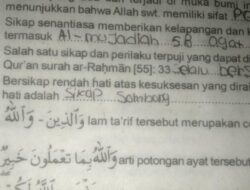 menunjukkan bahwa Allah swt. memiliki sifat
Sikap senantiasa memberikan kelapangan dan
termasuk Al-mujadlah 58 Agar
Salah satu sikap dan perilaku terpuji yang dapat di
Qur'an surah ar-Raḥmān [55]: 33 selalu
Bersikap rendah hati atas kesuksesan yang dirai
hati adalah Sikap Sombong
وَالَّذِينَ - وَاللَّهُ lam ta'rif tersebut merupakan c
وَاللَّهُ بِمَا تَعْمَلُونَ خَبِيرٌ arti potongan ayat tersebut